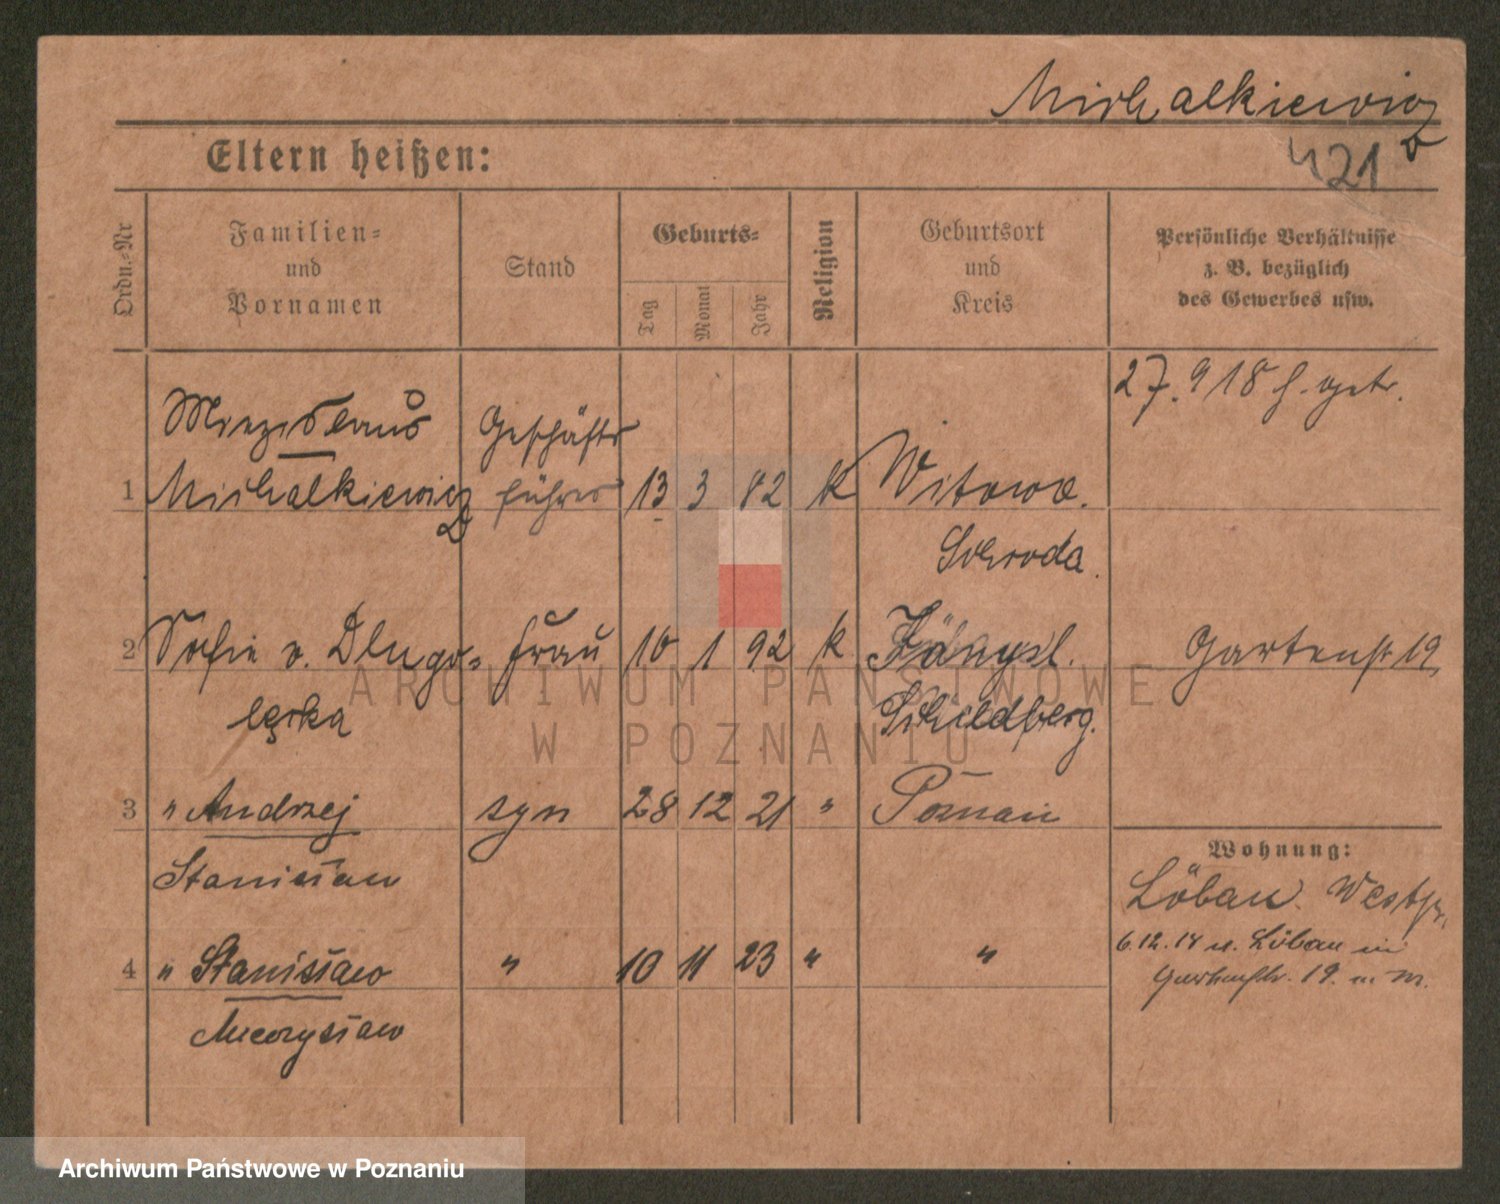 Michalkiewicz
421
Eltern heißen:
Ordn.-Nr
Familien-
und
Vornamen
Stand
Geburts-
Tag
Monat
Jahr
Religion
Geburtsort
und
Kreis
Persönliche Verhältnisse
z. B. bezüglich
des Gewerbes usw.
27. 9 18 h. getr.
Miezislaus Geschäfts
1 Michalkiewicz führer 13 3 82 K Witowo.
Schroda.
2 Sofie v. Dlugo- Frau 10 1 92 k Gartenstr 19
lęcka Schildberg.
3 " Andrzej syn 28 12 21 " Poznań
Stanisław
4 " Stanisław " 10 11 23 " "
Mieczysław
Wohnung:
Löbau. Westpr.
6.12.14 n. Löbau in
Gartenstr. 19.
ARCHIWUM PAŃSTWOWE
W POZNANIU
Archiwum Państwowe w Poznaniu